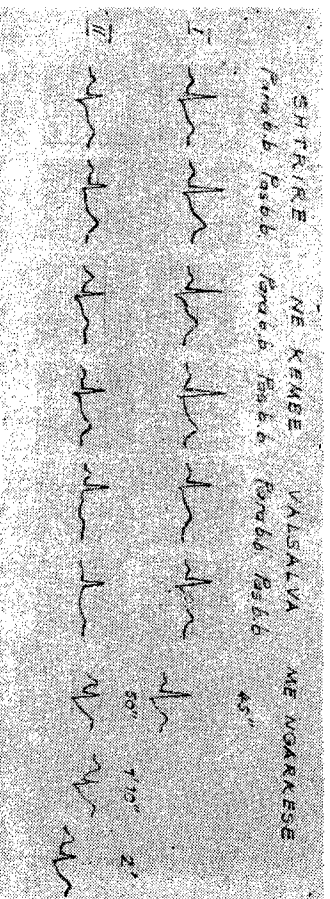 SHTRIRE NE KEMBE VALSALVA ME NGARKESE
Para b.b. Pas b.b. Para b.b. Pas b.b. Para b.b. Pas b.b. 45"
I
50" 1'10" 2'
II